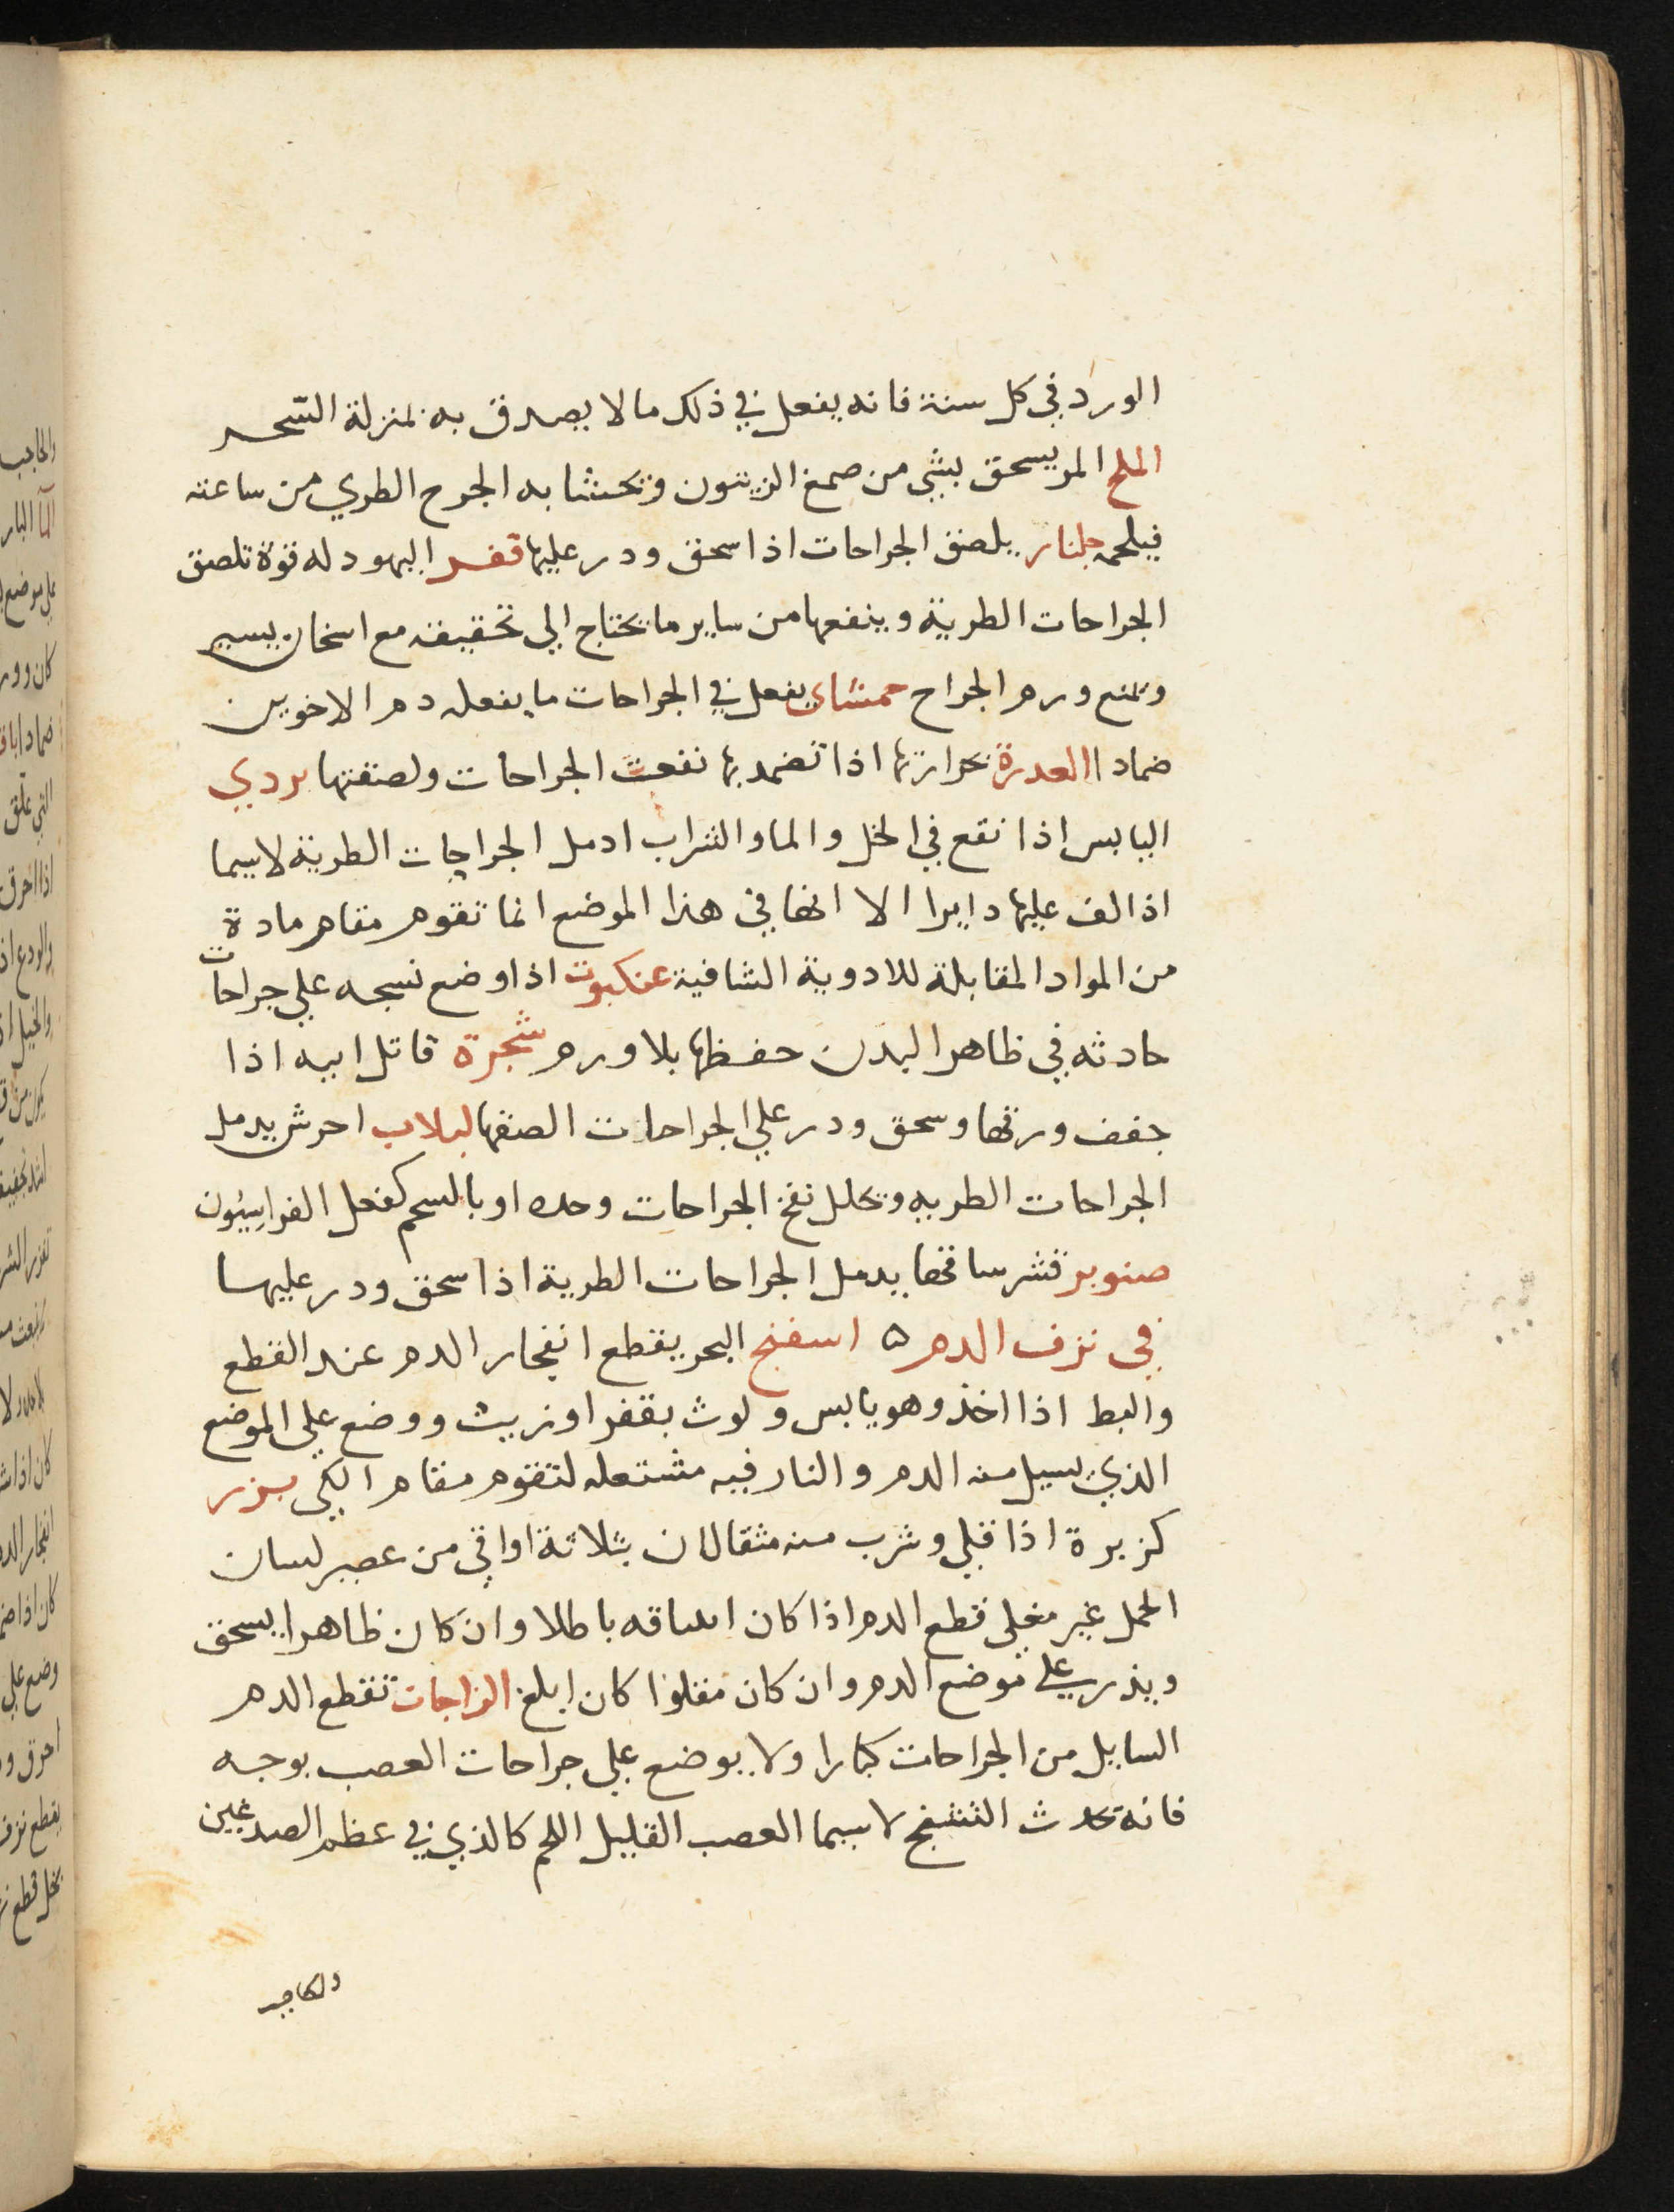 الورد في كل سنة فانه يفعل في ذلك ما لا يصدق به بمنزلة السّحر
الملح المر يسحق بشي من صمغ الزيتون ويحشا به الجرح الطري من ساعته
فيلحمه جلنار يلصق الجراحات اذا سحق ودر عليها قفر اليهود له قوة تلصق
الجراحات الطرية وينفعها من ساير ما يحتاج الي تخفيفه مع اسخان يسير
ويمنع ورم الجراح حمشاى يفعل في الجراحات ما يفعله دم الاخوين
ضمادا العدرة بحرارتها اذا تضمد بها نفعت الجراحات ولصقتها بردي
اليابس اذا نقع في الخل والما والشراب ادمل الجراحات الطرية لا سيما
اذا لف عليها دايرا الا انها في هذا الموضع انما تقوم مقام مادة
من المواد المقابلة للادوية الشافية عنكبوت اذا وضع نسجه علي جراحات
حادثه في ظاهر البدن حفظها بلا ورم شجرة قاتل ابيه اذا
جفف ورقها وسحق ودر علي الجراحات الصقها لبلاب احرش يدمل
الجراحات الطريه ويحلل نفخ الجراحات وحده او بالسحم كفعل الفراسيون
صنوبر قشر ساقها يدمل الجراحات الطرية اذا سحق ودر عليها
في نزف الدم ه اسفنج البحر يقطع انفجار الدم عند القطع
والبط اذا اخذ وهو يابس ولوث بقفر او زيت ووضع علي الموضع
الذي يسيل منه الدم والنار فيه مشتعله لتقوم مقام الكي بزر
كزبرة اذا قلي وشرب منه مثقالان بثلاثة اواقي من عصير لسان
الحمل غير مغلي قطع الدم اذا كان انساقه باطلا وان كان ظاهرا يسحق
ويذر علي موضع الدم وان كان مقلوا كان ابلغ الزاجات تقطع الدم
السايل من الجراحات كبارا ولا يوضع علي جراحات العصب بوجه
فانه يحدث التشنج لا سيما العصب القليل اللحم كالذي في عظم الصدغين
والحاجب